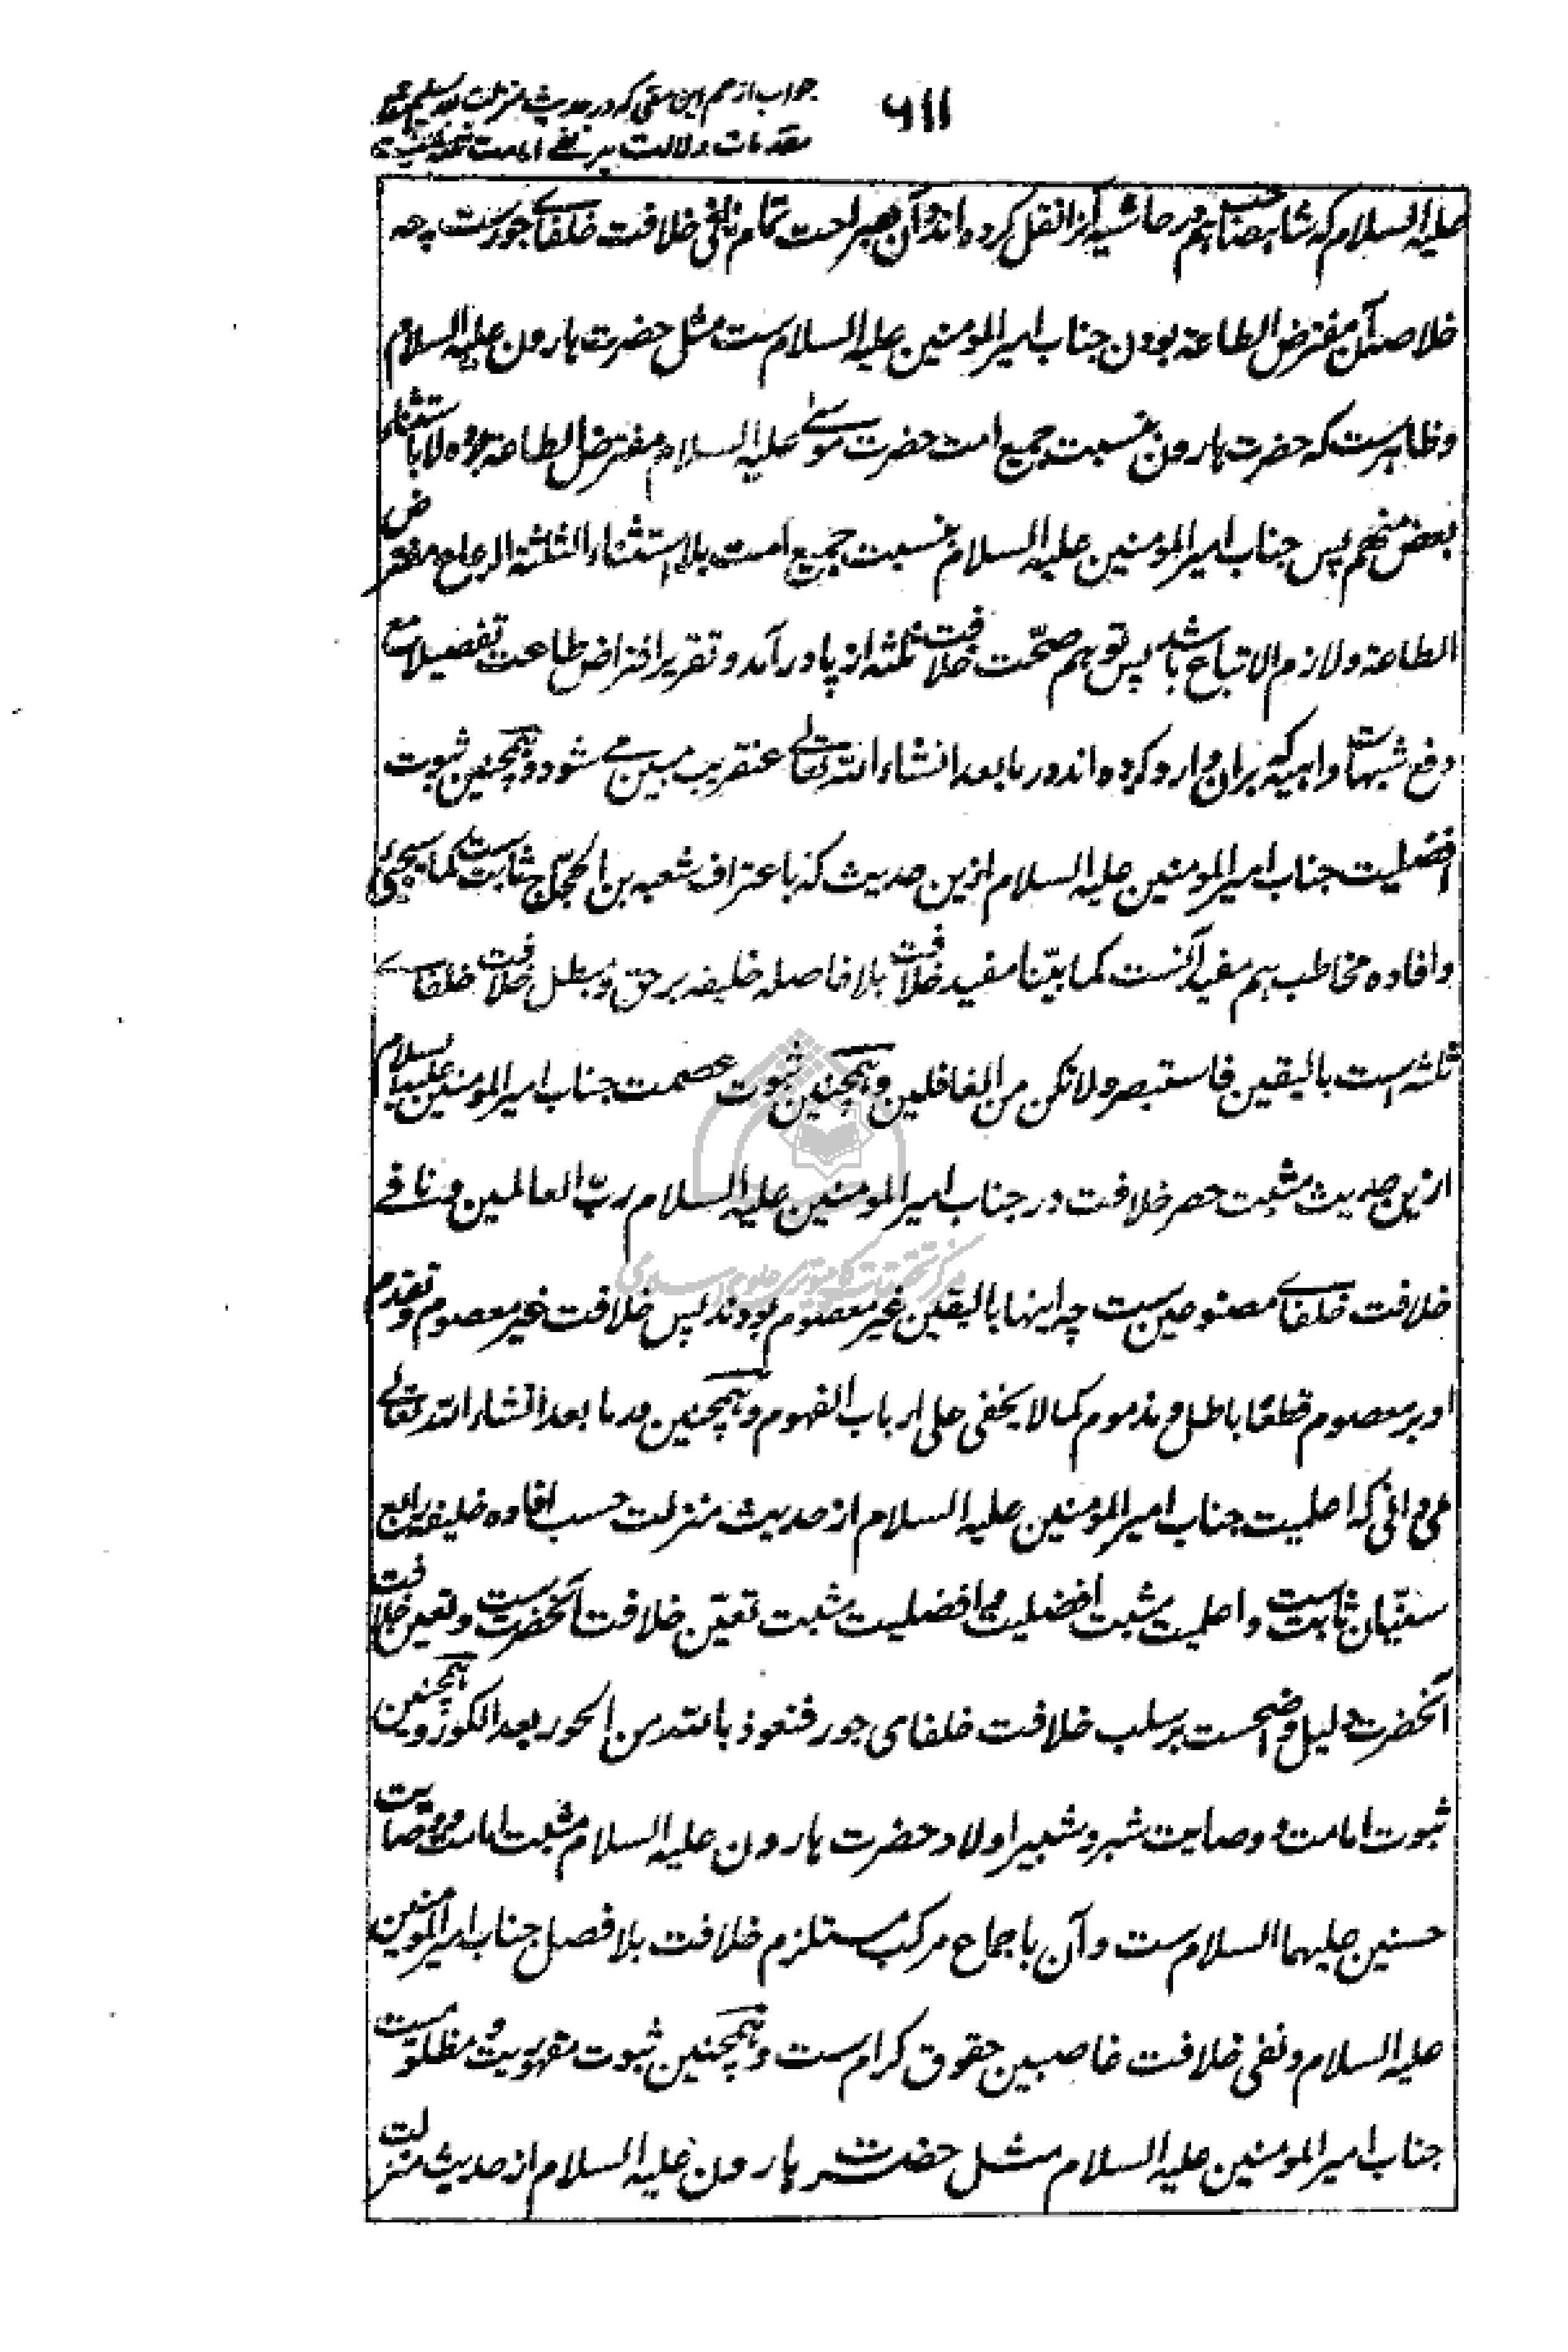 ۶۱۱
جواب از زعم این معنی که در حدیث منزلت
مقدمات دلالت بر نفی امامت
علیه السلام که شاهصاحب هم در حاشیه آنرا نقل کرده‌اند و آن بصراحت تمام نافی خلافت خلفای جورست چه
خلاصه آن مفترض الطاعة بودن جناب امیر المومنین علیه السلام ست مثل حضرت هارون علیه السلام
و ظاهرست که حضرت هارون بنسبت جمیع امت حضرت موسی علیه السلام مفترض الطاعة بوده لا باستثناء
بعض منهم پس جناب امیر المومنین علیه السلام بنسبت جمیع امت بلا استثناء الثلثة الرعاع مفترض
الطاعة و لازم الاتباع باشد پس توهم صحّت خلافت ثلثه از پا در آمد و تقریر افتراض طاعت تفصیلا مع
دفع شبهات واهیه که بران وارد کرده‌اند در ما بعد انشاء الله تعالی عنقریب مبین می شود و همچنین ثبوت
افضلیت جناب امیر المومنین علیه السلام ازین حدیث که باعتراف شعبه بن الحجّاج ثابت ست کما سیجئ
و افاده مخاطب هم مفید آنست کما بیّنا مفید خلافت بلا فاصله خلیفه بر حق و مبطل خلافت خلفای
ثلثه است بالیقین فاستبصر و لا تکن من الغافلین و همچنین ثبوت عصمت جناب امیر المومنین علیه السلام
ازین حدیث مثبت حصر خلافت در جناب امیر المومنین علیه السلام ربّ العالمین و منافی
خلافت خلفای مصنوعین ست چه اینها بالیقین غیر معصوم بودند پس خلافت غیر معصوم و تقدم
او بر معصوم قطعًا باطل و مذموم کما لا یخفی علی ارباب الفهوم و همچنین در ما بعد انشاء الله تعالی
می دانی که اعلمیت جناب امیر المومنین علیه السلام از حدیث منزلت حسب افاده خلیفه رابع
سنّیان ثابت ست و اعلمیت مثبت افضلیت و افضلیت مثبت تعیّن خلافت آنحضرت ست و تعین خلافت
آنحضرت دلیل واضحست بر سلب خلافت خلفای جور فنعوذ بالله من الحور بعد الکور و همچنین
ثبوت امامت و وصایت شبر و شبیر اولاد حضرت هارون علیه السلام مثبت امامت و وصایت
حسنین علیهما السلام ست و آن باجماع مرکب مستلزم خلافت بلا فصل جناب امیر المومنین
علیه السلام و نفی خلافت غاصبین حقوق کرام ست و همچنین ثبوت مقهوریت و مظلومیت
جناب امیر المومنین علیه السلام مثل حضرت هارون علیه السلام از حدیث منزلت